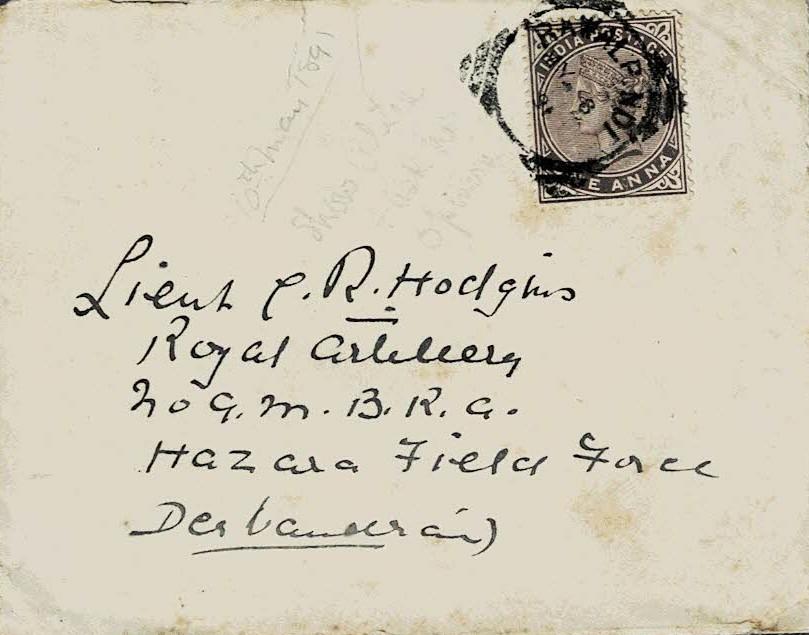 RAWALPINDI
INDIA POSTAGE
ONE ANNA
6th Mar 1891
Lieut C. R. Hodgins
Royal Artillery
No 9. M. B. R. A.
Hazara Field Force